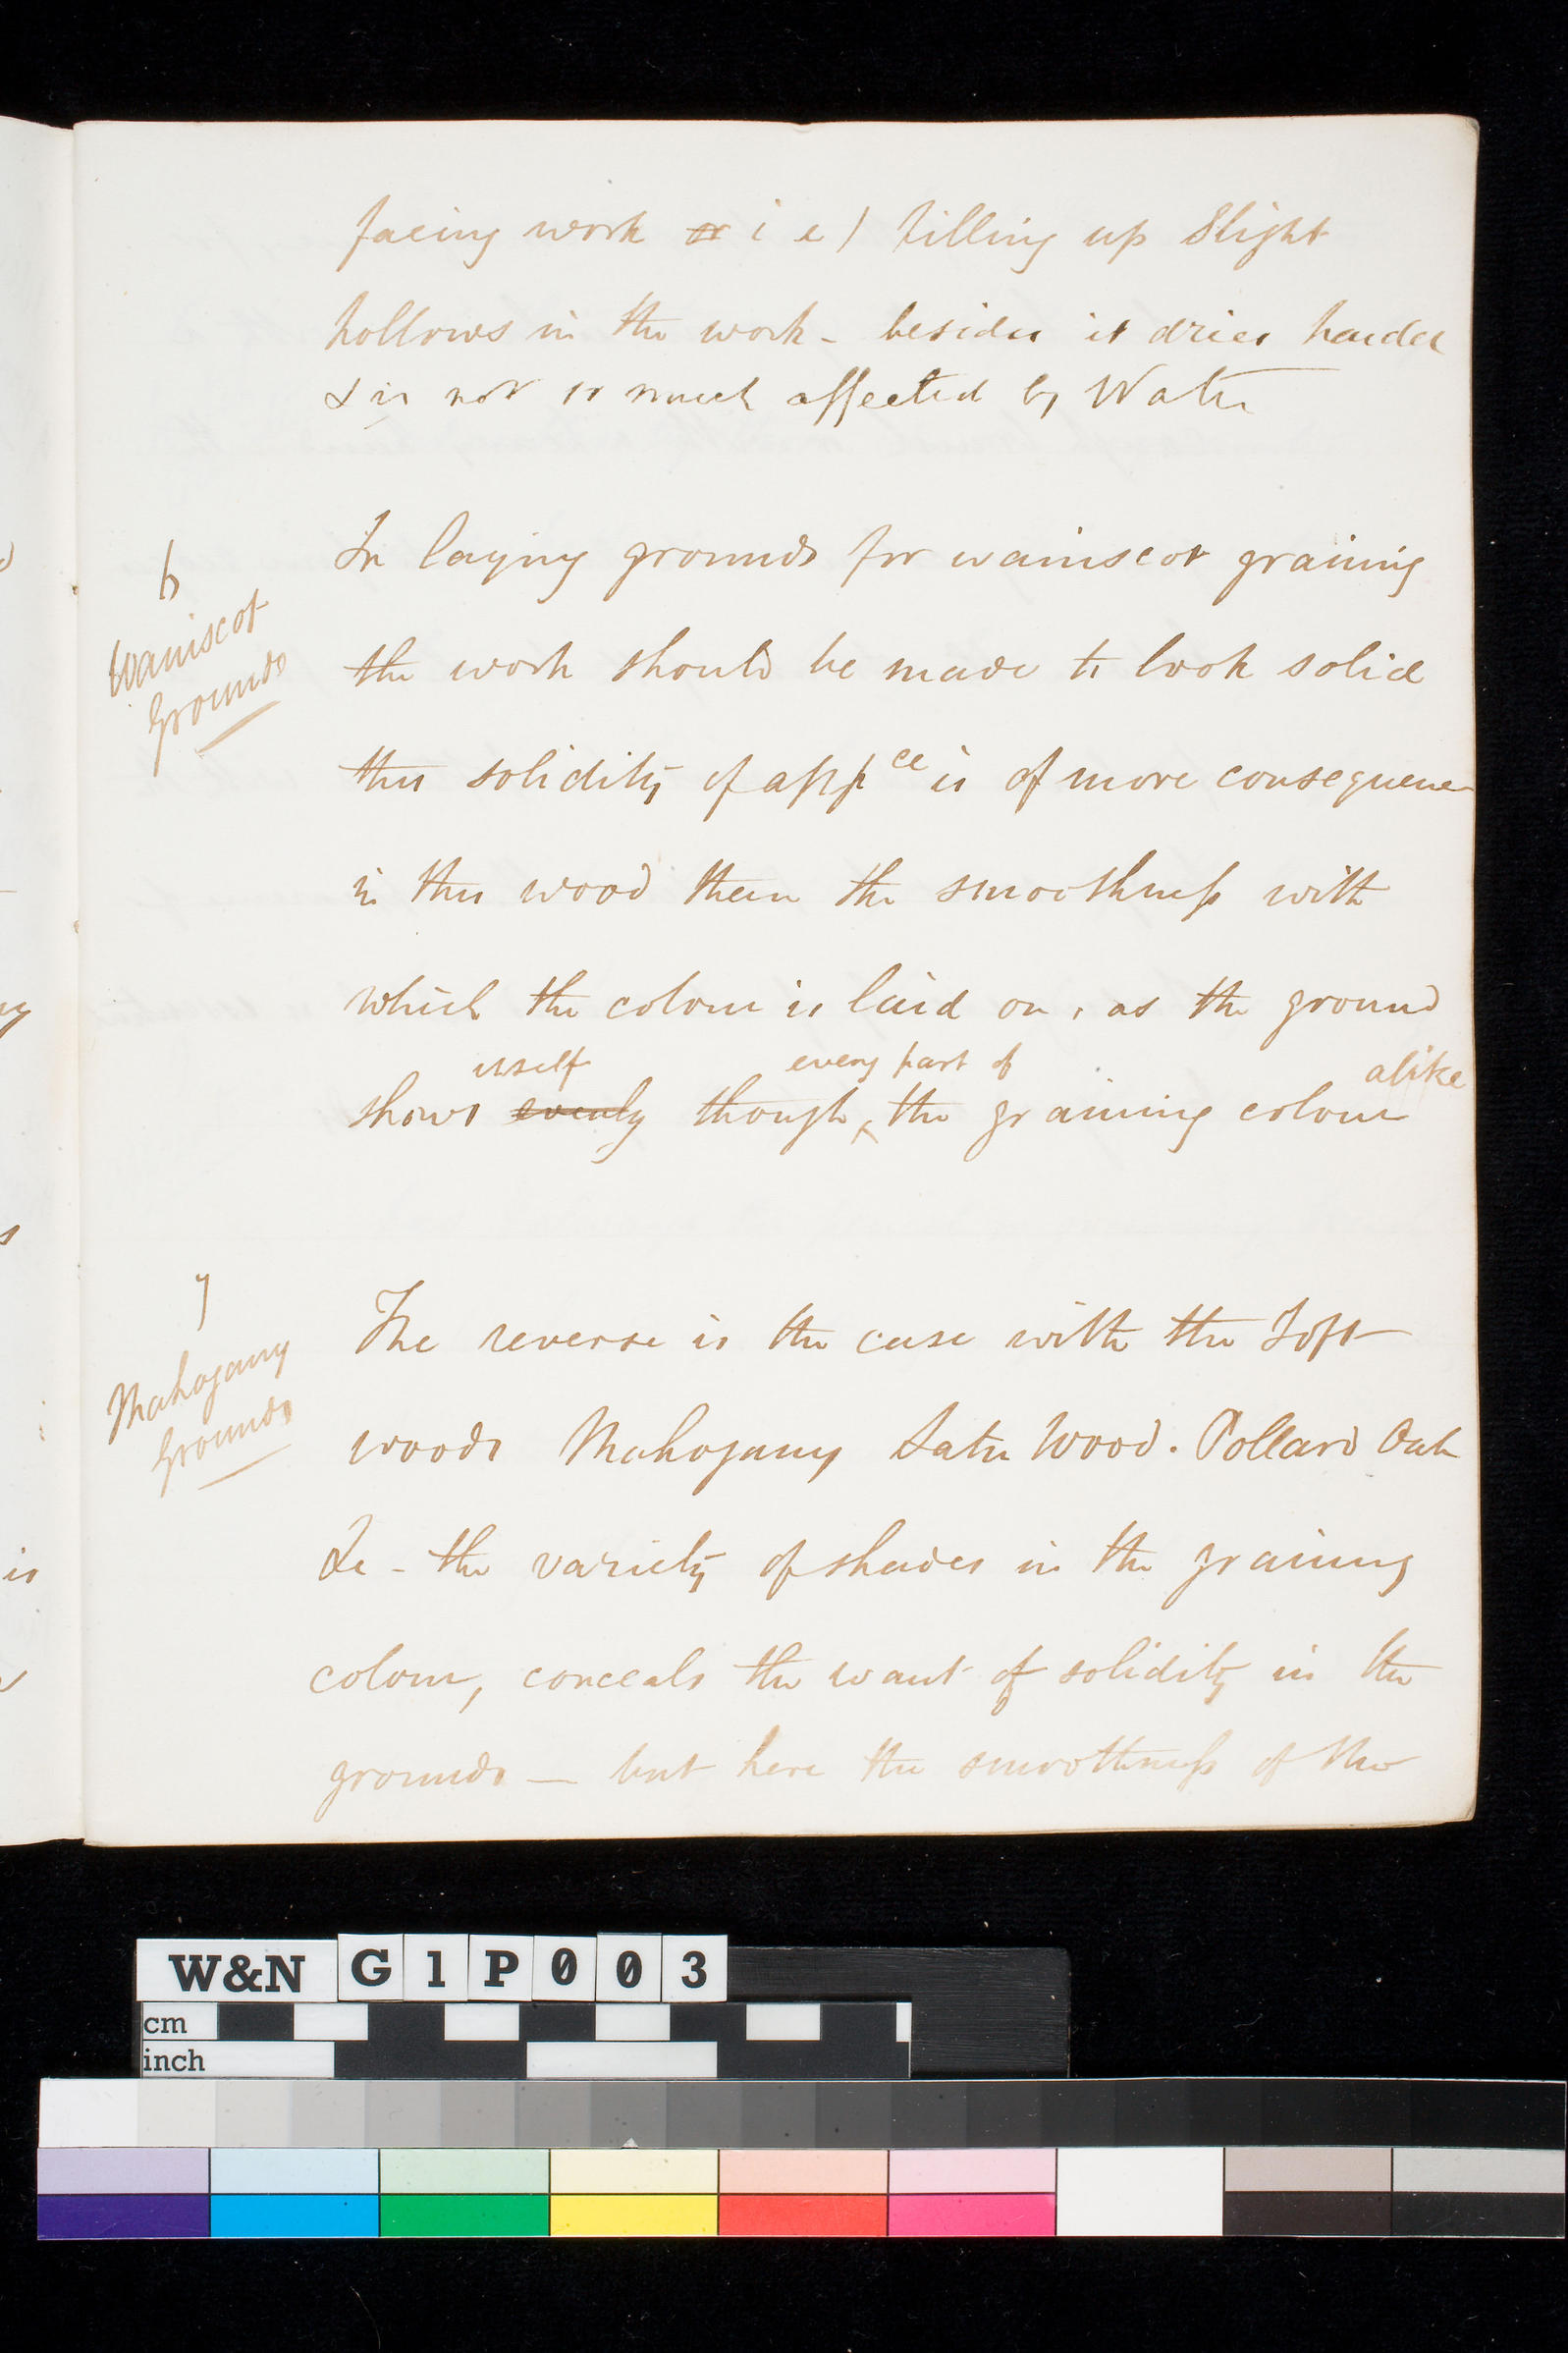 facing work or i e) filling up Slight
hollows in the work - besides it dries harder
& is not so much affected by Water
6
Wainscot
Grounds
In laying grounds for wainscot graining
the work should be made to look solid
this solidity of appce is of more consequence
in this wood than the smoothness with
which the colour is laid on, as the ground
itself every part of alike
shows evenly though the graining colour
7
Mahogany
Grounds
The reverse is the case with the Soft
woods Mahogany Satin Wood. Pollard Oak
&c - the variety of shades in the graining
colour, conceals the want of solidity in the
grounds — but here the smoothness of the
is
W&N G1P003
cm
inch